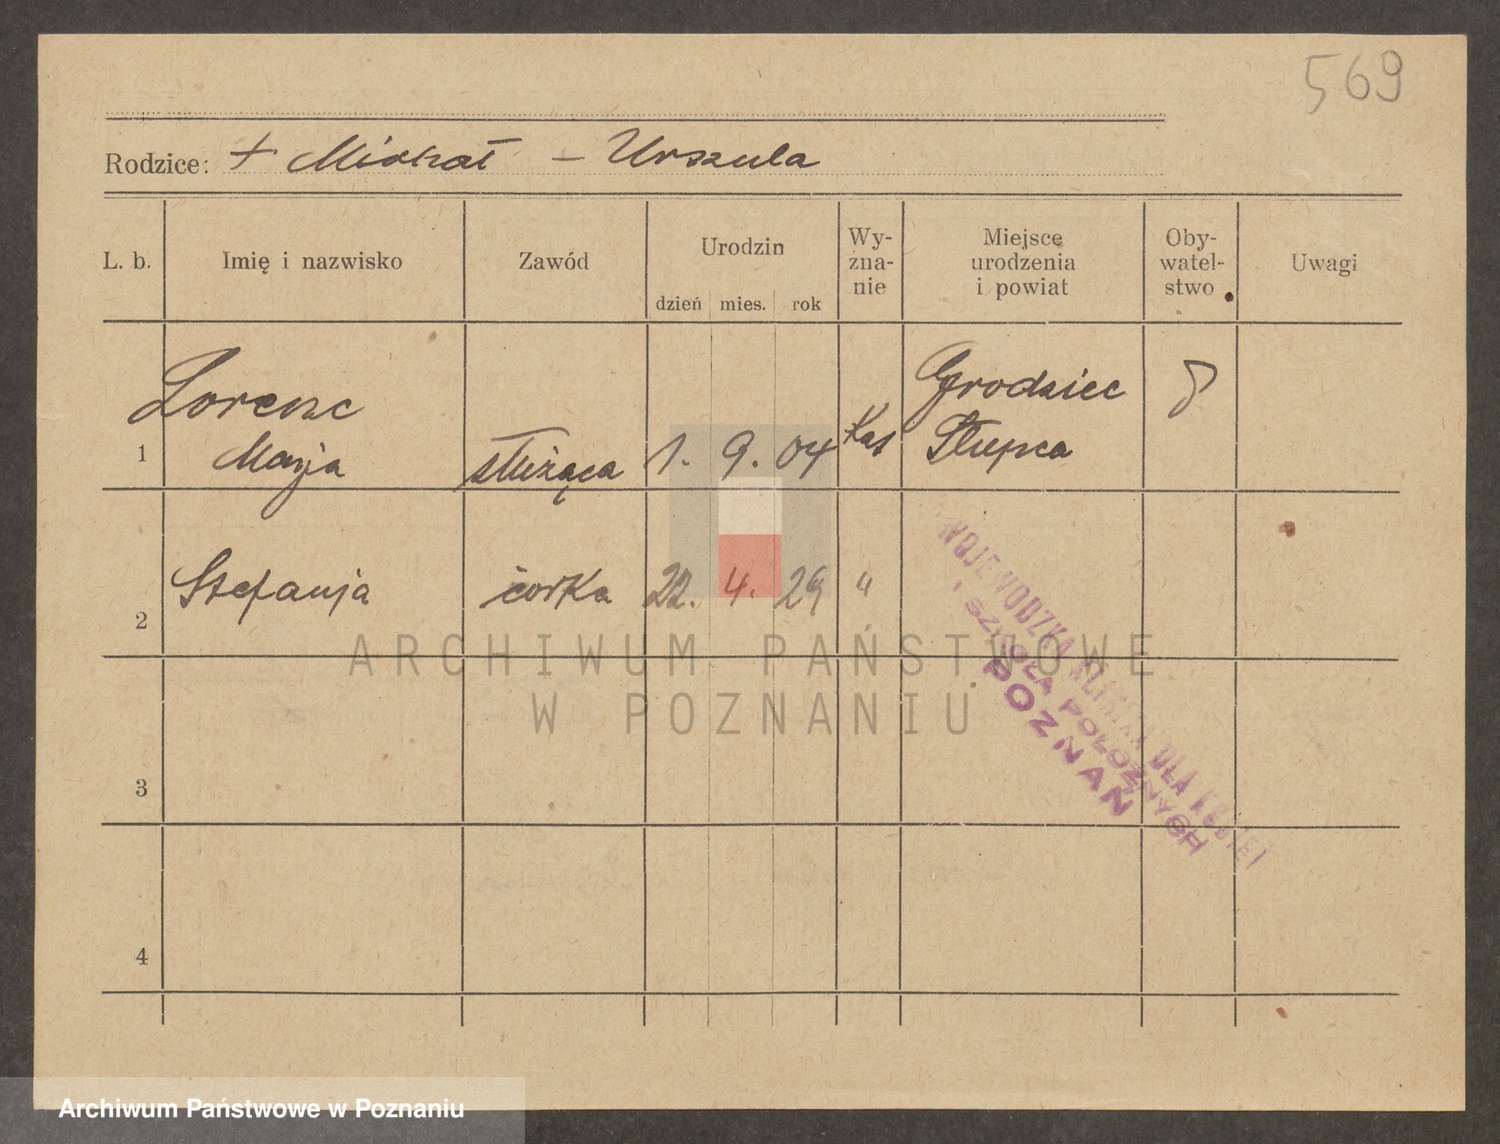 569
Rodzice: + Michał – Urszula
L. b. Imię i nazwisko Zawód Urodzin dzień mies. rok Wy-zna-nie Miejsce urodzenia i powiat Oby-watel-stwo Uwagi
Lorenc Grodziec
1 Marja służąca 1. 9. 04 Kat Słupca
2 Stefanja córka 22. 4. 29 "
3
4
WOJEWÓDZKA KLINIKA DLA KOBIET
I SZKOŁA POŁOŻNYCH
POZNAŃ
ARCHIWUM PAŃSTWOWE
W POZNANIU
Archiwum Państwowe w Poznaniu